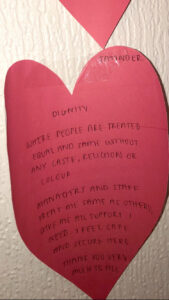 JATINDER
DIGNITY
WHERE PEOPLE ARE TREATED
EQUAL AND SAME WITHOUT
ANY CASTE, RELIGIONS OR
COLOUR
MANAGERS AND STAFF
TREAT ME SAME AS OTHERS,
GIVE ME ALL SUPPORT I
NEED. I FEEL SAFE
AND SECURE HERE
THANK YOU VERY
MUCH TO ALL